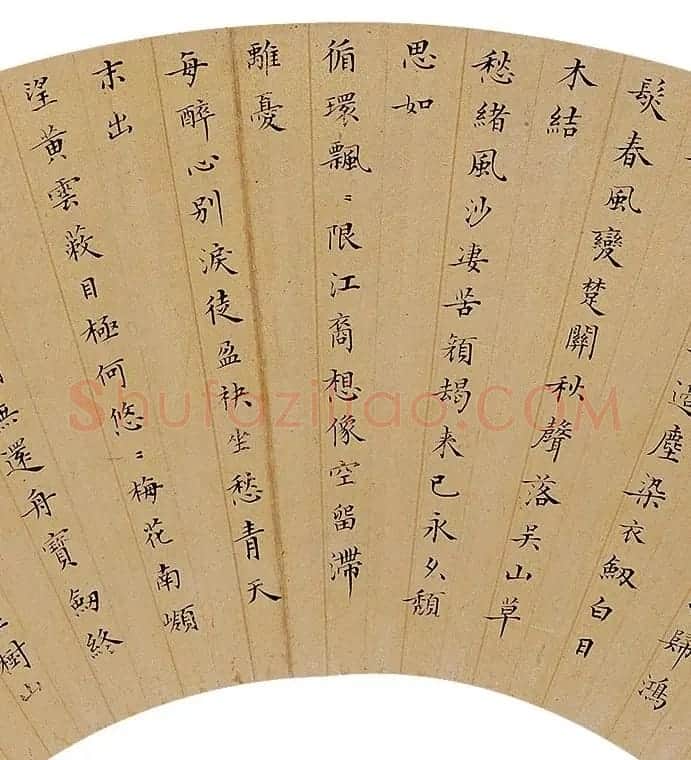 歸鴻
塵染衣劒白日
髮春風變楚關秋聲落吳山草
木結
愁緒風沙淒苦顏朅來已永久頹
思如
循環飄〻限江裔想像空留滯
離憂
每醉心別淚徒盈袂坐愁青天
末出
望黃雲蔽目極何悠〻梅花南嶺
無還舟寶劒終
樹山
Shufaziliao.COM